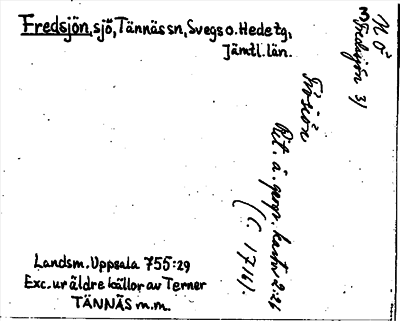 Fredsjön, sjö, Tännäs sn, Svegs o. Hede tg,
Jämtl. län.
N Ö
Fredsjön 31
Frösiön
Rit. å geogr. kartv. 2:26
(c. 1716).
Landsm. Uppsala 755:29
Exc. ur äldre källor av Terner
TÄNNÄS m.m.